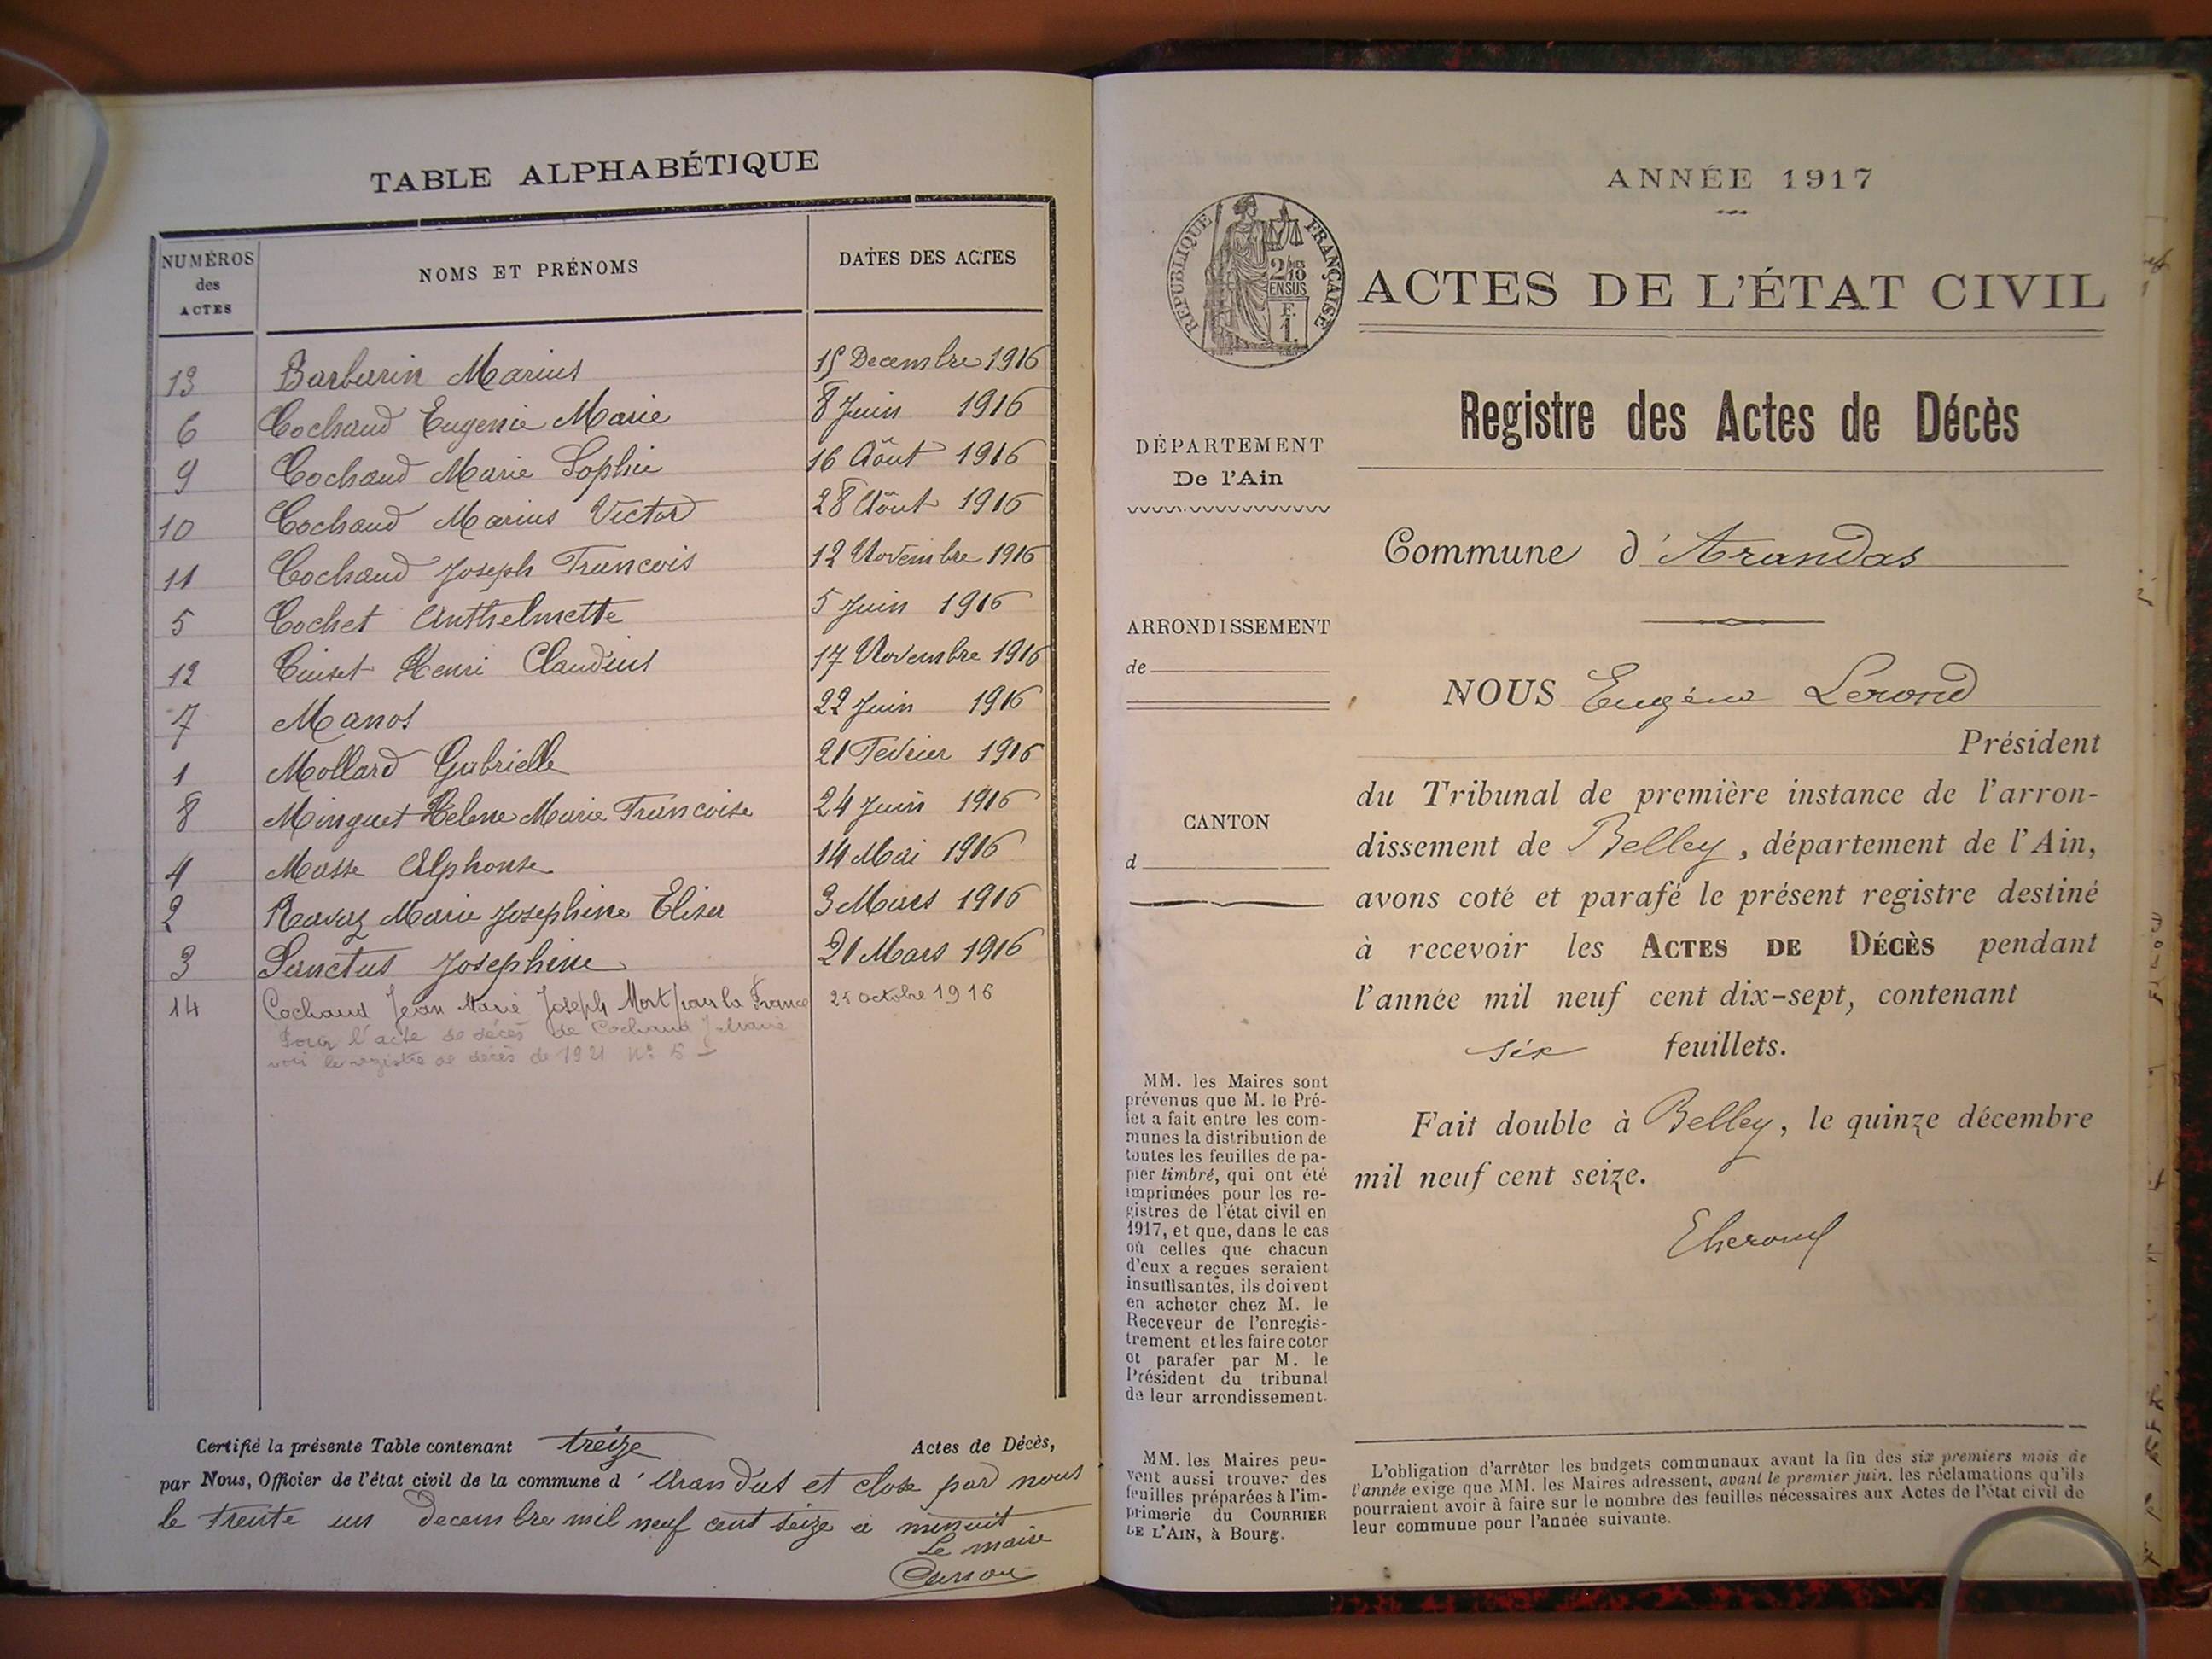 TABLE ALPHABÉTIQUE
NUMÉROS des ACTES
NOMS ET PRÉNOMS
DATES DES ACTES
13 Barbarin Marius 15 Decembre 1916
6 Cochaud Eugenie Marie 8 Juin 1916
9 Cochaud Marie Sophie 16 Août 1916
10 Cochaud Marius Victor 28 Août 1916
11 Cochaud Joseph Francois 12 Novembre 1916
5 Cochet Anthelmette 5 Juin 1916
12 Cuiset Henri Claudius 17 Novembre 1916
7 Manos 22 Juin 1916
1 Mollard Gabrielle 21 Fevrier 1916
8 Minguet Helene Marie Francoise 24 Juin 1916
4 Masse Alphonse 14 Mai 1916
2 Ravaz Marie Josephine Elisa 3 Mars 1916
3 Sanctus Josephine 21 Mars 1916
14 Cochaud Jean Marie Joseph Mort pour la France 25 octobre 1916
Pour l'acte de décès de Cochaud J Marie
voir le registre de décès de 1921 N° 5
Certifié la présente Table contenant treize Actes de Décès,
par Nous, Officier de l'état civil de la commune d'Arandas et close par nous
le trente un Decembre mil neuf cent seize à minuit
Le maire
ANNÉE 1917
RÉPUBLIQUE FRANÇAISE
2/10
EN SUS
F.
1.
ACTES DE L'ÉTAT CIVIL
Registre des Actes de Décès
DÉPARTEMENT
De l'Ain
Commune d'Arandas
ARRONDISSEMENT
de
NOUS Eugène Lerond
Président
du Tribunal de première instance de l'arron-
dissement de Belley, département de l'Ain,
avons coté et parafé le présent registre destiné
à recevoir les ACTES DE DÉCÈS pendant
l'année mil neuf cent dix-sept, contenant
six feuillets.
CANTON
d
Fait double à Belley, le quinze décembre
mil neuf cent seize.
MM. les Maires sont
prévenus que M. le Pré-
fet a fait entre les com-
munes la distribution de
toutes les feuilles de pa-
pier timbré, qui ont été
imprimées pour les re-
gistres de l'état civil en
1917, et que, dans le cas
où celles que chacun
d'eux a reçues seraient
insuffisantes, ils doivent
en acheter chez M. le
Receveur de l'enregis-
trement et les faire coter
et parafer par M. le
Président du tribunal
de leur arrondissement.
MM. les Maires peu-
vent aussi trouver des
feuilles préparées à l'im-
primerie du COURRIER
DE L'AIN, à Bourg.
L'obligation d'arrêter les budgets communaux avant la fin des six premiers mois de
l'année exige que MM. les Maires adressent, avant le premier juin, les réclamations qu'ils
pourraient avoir à faire sur le nombre des feuilles nécessaires aux Actes de l'état civil de
leur commune pour l'année suivante.